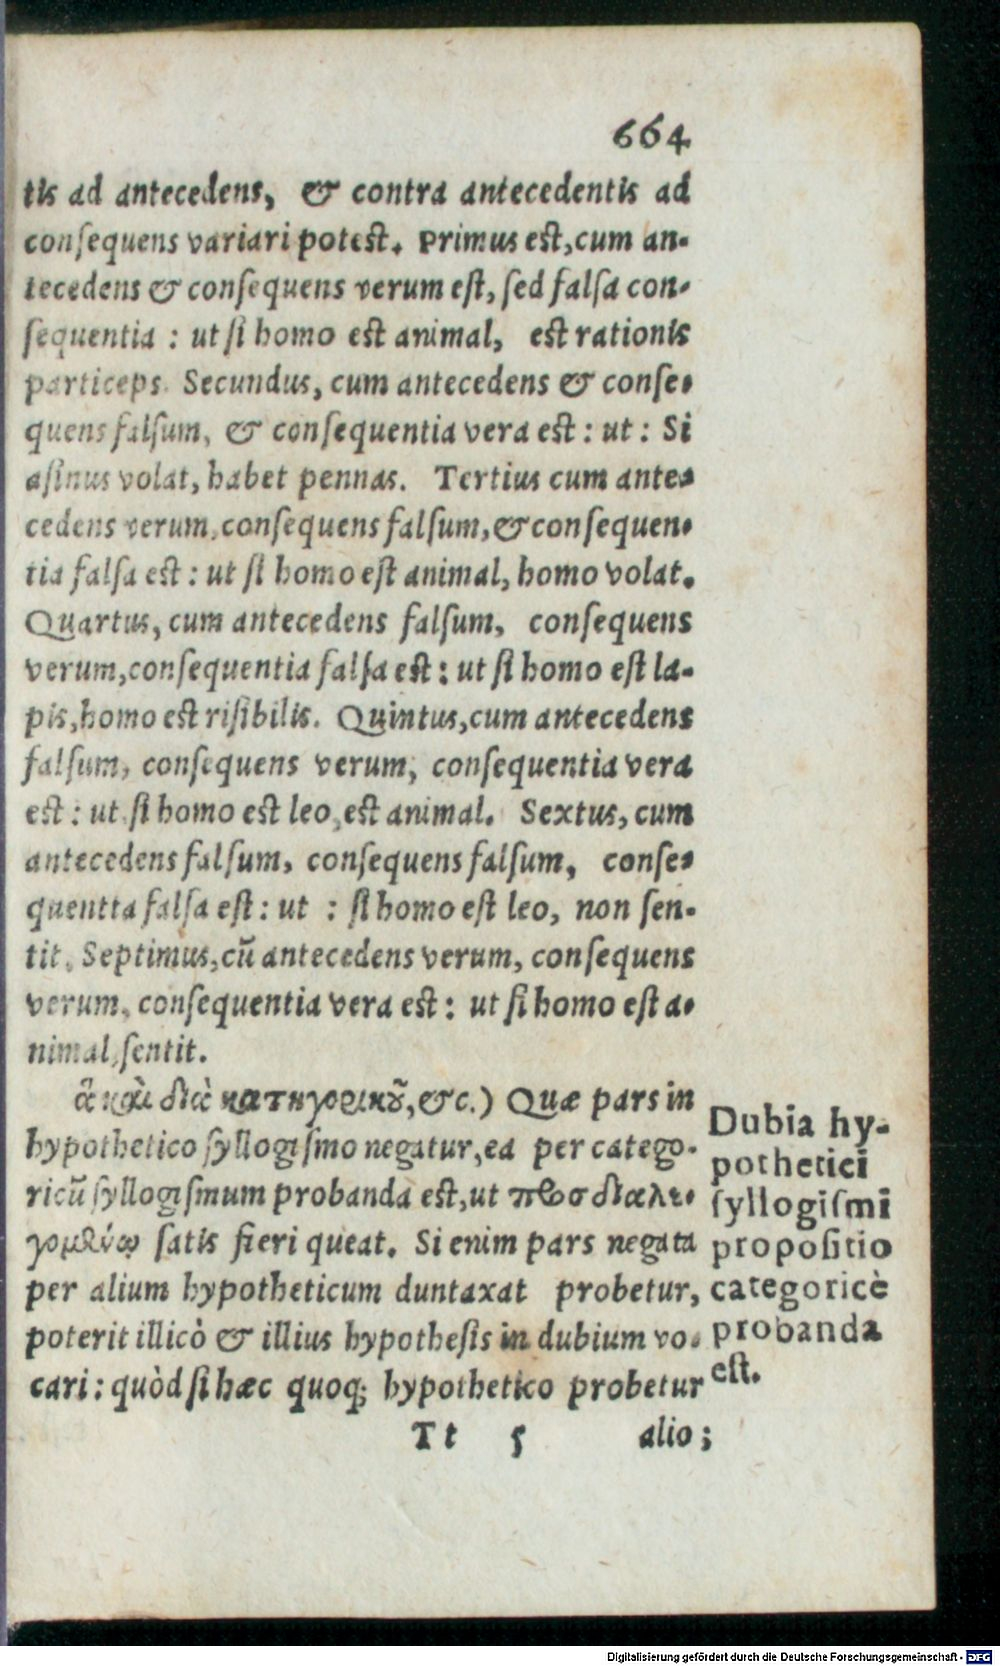 664
tis ad antecedens, & contra antecedentis ad
conſequens variari potest. Primus est, cum an-
tecedens & conſequens verum eſt, ſed falſa con-
ſequentia : ut ſi homo est animal, est rationis
particeps. Secundus, cum antecedens & conſe-
quens falſum, & conſequentia vera est : ut : Si
aſinus volat, habet pennas. Tertius cum ante-
cedens verum, conſequens falſum, & conſequen-
tia falſa est : ut ſi homo eſt animal, homo volat.
Quartus, cum antecedens falſum, conſequens
verum, conſequentia falſa est : ut ſi homo eſt la-
pis, homo est riſibilis. Quintus, cum antecedens
falſum, conſequens verum, conſequentia vera
est : ut ſi homo est leo, est animal. Sextus, cum
antecedens falſum, conſequens falſum, conſe-
quentta falſa eſt : ut : ſi homo eſt leo, non ſen-
tit. Septimus, cũ antecedens verum, conſequens
verum, conſequentia vera est : ut ſi homo eſt a-
nimal, ſentit.
ἃ καὶ διὰ κατηγορικοῦ, &c.) Quæ pars in
hypothetico ſyllogiſmo negatur, ea per catego-
ricũ ſyllogiſmum probanda est, ut προσδιαλε-
γομένῳ ſatis fieri queat. Si enim pars negata
per alium hypotheticum duntaxat probetur,
poterit illicò & illius hypotheſis in dubium vo-
cari : quòd ſi hæc quoq; hypothetico probetur
Tt 5 alio;
Dubia hy-
pothetici
ſyllogiſmi
propoſitio
categoricè
probanda
eſt.
Digitalisierung gefördert durch die Deutsche Forschungsgemeinschaft - DFG